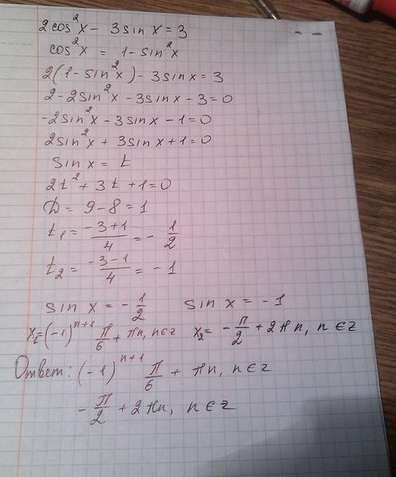 2cos²x - 3sinx = 3
cos²x = 1 - sin²x
2(1-sin²x) - 3sinx = 3
2 - 2sin²x - 3sinx - 3 = 0
-2sin²x - 3sinx - 1 = 0
2sin²x + 3sinx + 1 = 0
sinx = t
2t² + 3t + 1 = 0
D = 9 - 8 = 1
t₁ = (-3+1)/4 = -1/2
t₂ = (-3-1)/4 = -1
sinx = -1/2 sinx = -1
x₁ = (-1)ⁿ⁺¹ π/6 + πn, n∈z x₂ = -π/2 + 2πn, n∈z
Ответ: (-1)ⁿ⁺¹ π/6 + πn, n∈z
-π/2 + 2πn, n∈z